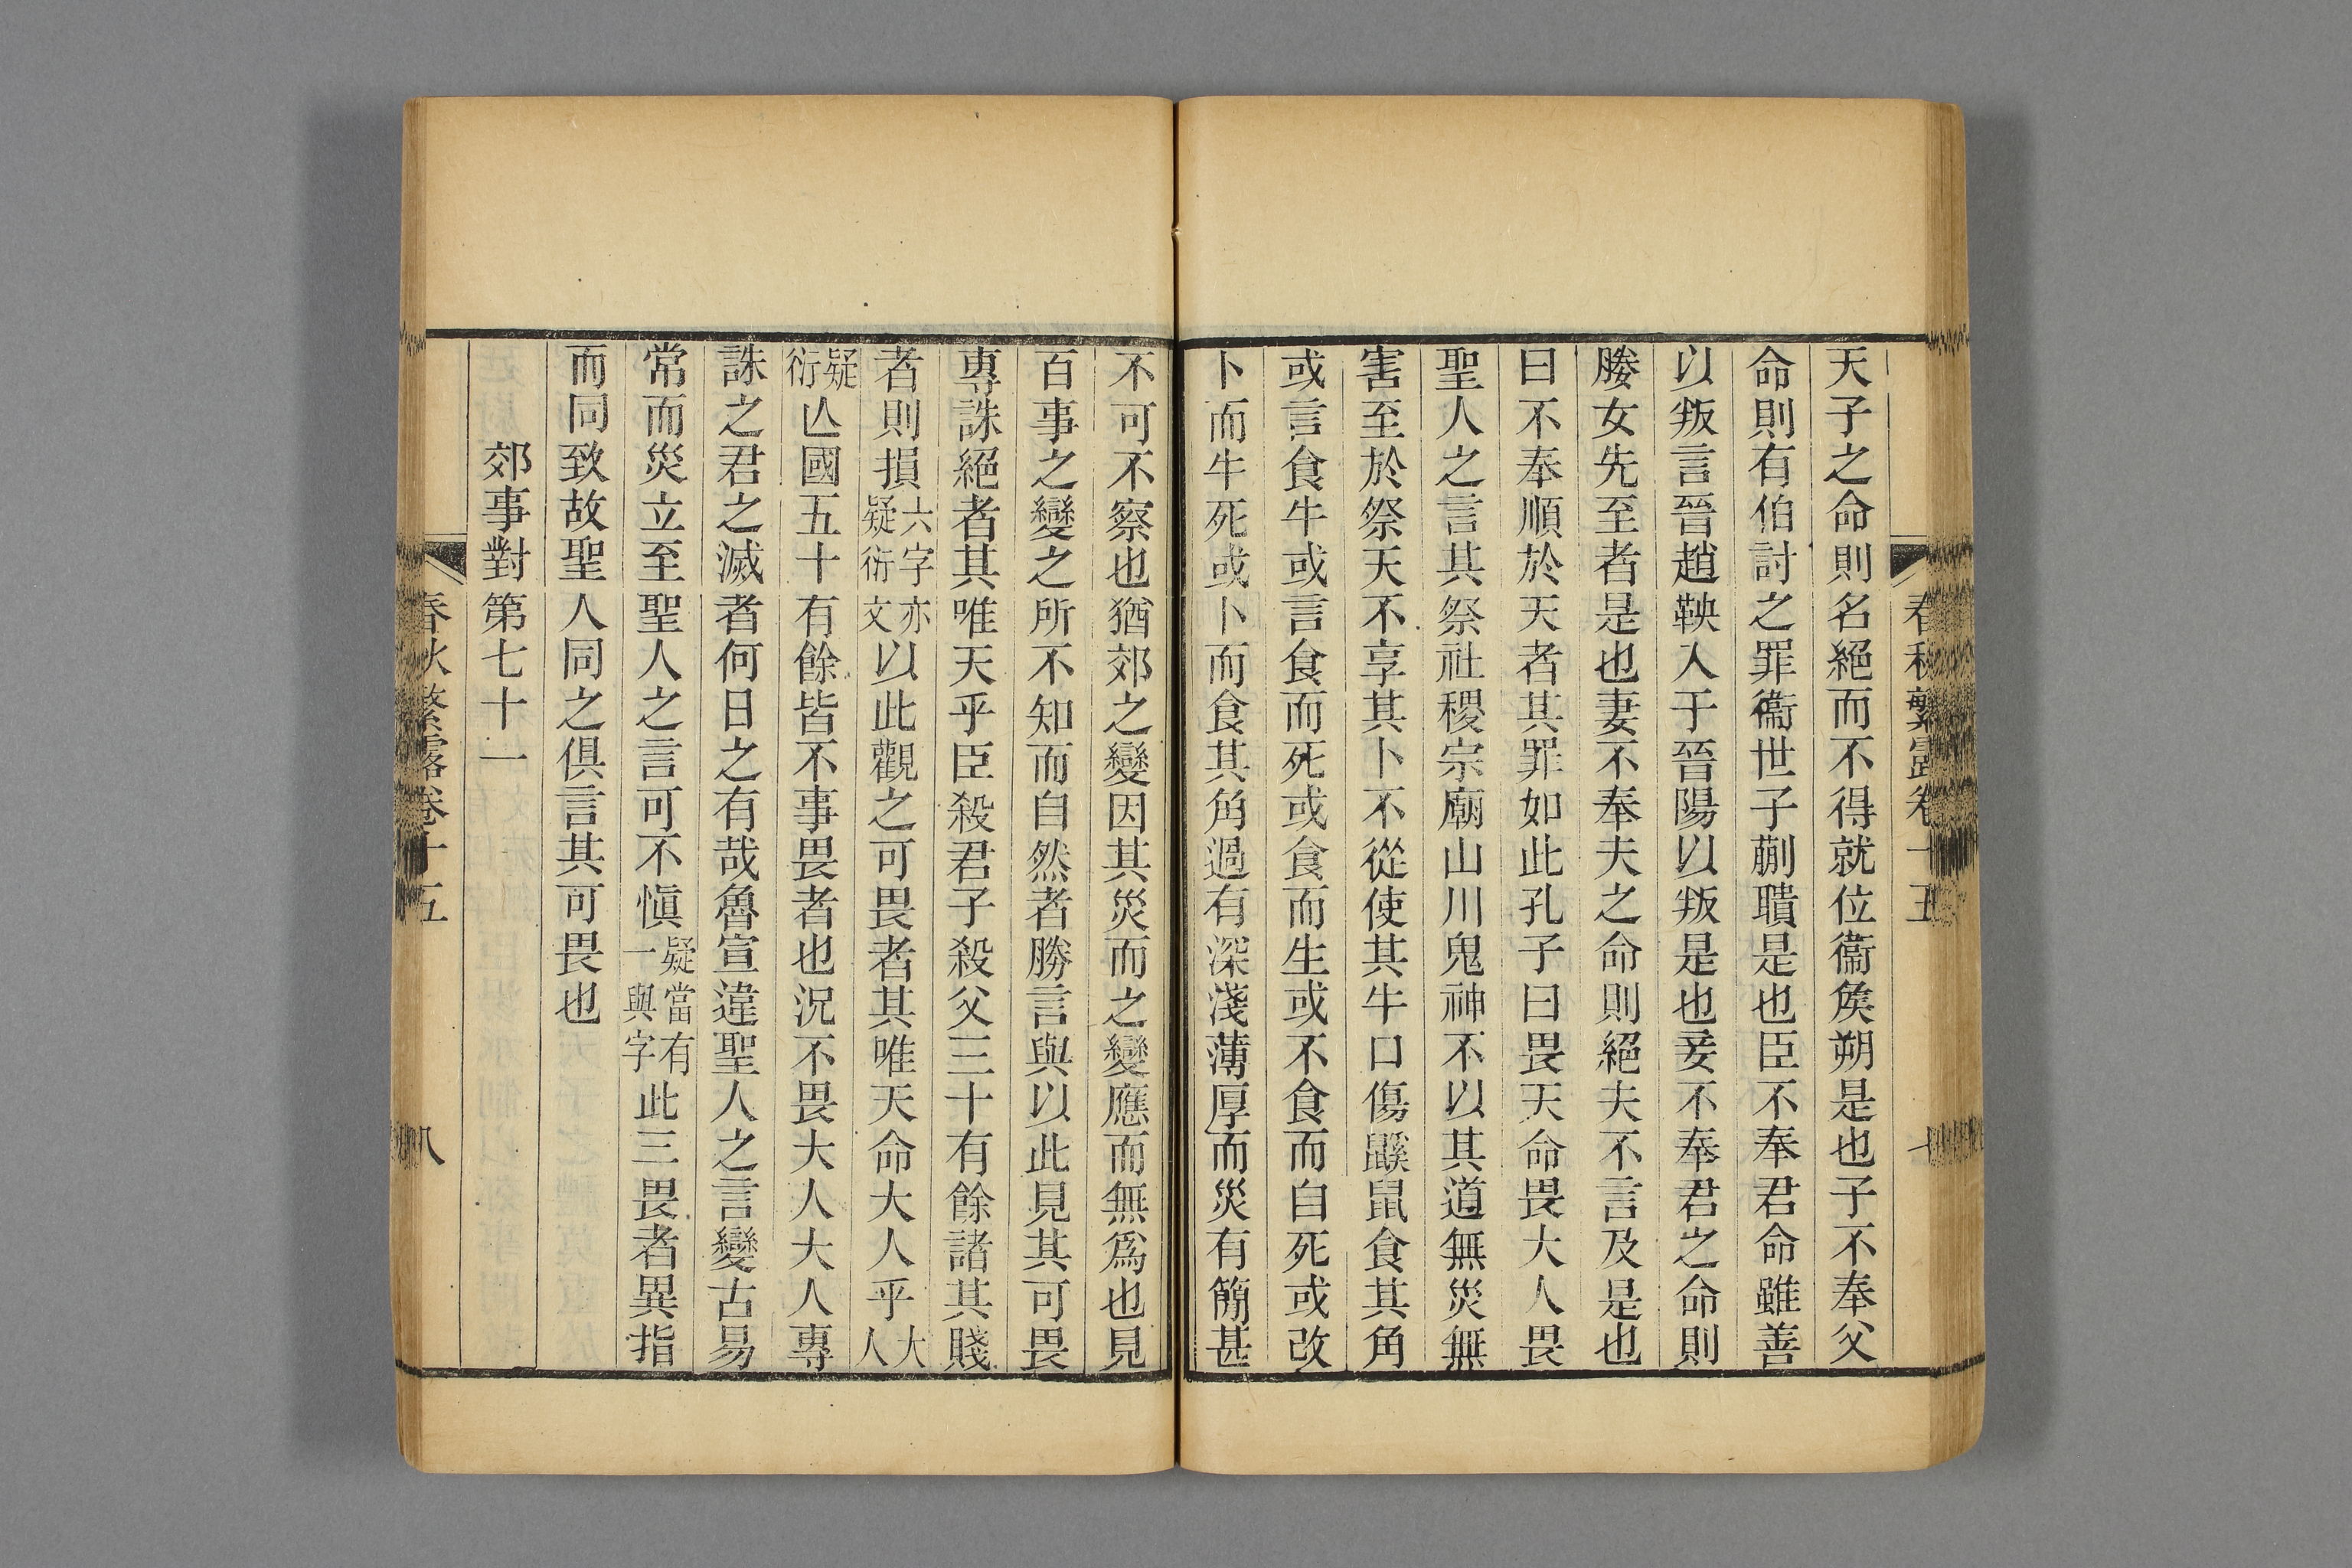 春秋繁露卷十五
天子之命則名絕而不得就位衞矦朔是也子不奉父
命則有伯討之罪衞世子蒯聵是也臣不奉君命雖善
以叛言晉趙鞅入于晉陽以叛是也妾不奉君之命則
媵女先至者是也妻不奉夫之命則絕夫不言及是也
曰不奉順於天者其罪如此孔子曰畏天命畏大人畏
聖人之言其祭社稷宗廟山川鬼神不以其道無災無
害至於祭天不享其卜不從使其牛口傷鼷鼠食其角
或言食牛或言食而死或食而生或不食而自死或改
卜而牛死或卜而食其角過有深淺薄厚而災有簡甚
不可不察也猶郊之變因其災而之變應而無爲也見
百事之變之所不知而自然者勝言與以此見其可畏
專誅絕者其唯天乎臣殺君子殺父三十有餘諸其賤
者則損六字亦疑衍文以此觀之可畏者其唯天命大人乎大人
疑衍亾國五十有餘皆不事畏者也況不畏大人大人專
誅之君之滅者何日之有哉魯宣違聖人之言變古易
常而災立至聖人之言可不慎疑當有一與字此三畏者異指
而同致故聖人同之俱言其可畏也
郊事對第七十一
春秋繁露卷十五
八